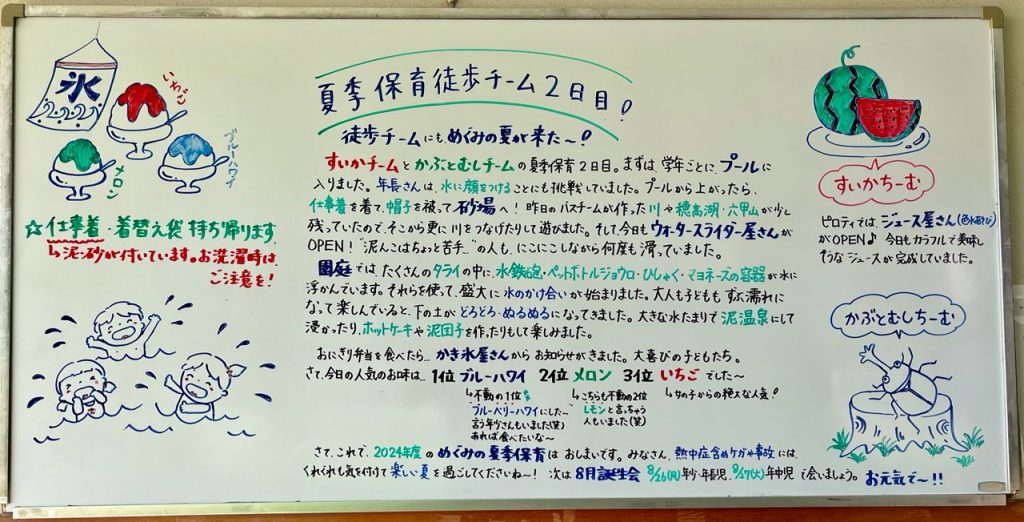 夏季保育徒歩チーム2日目!
徒歩チームにも、めぐみの夏が来た〜!
すいかチームとかぶとむしチームの夏季保育2日目。まずは、学年ごとに、プールに
入りました。年長さんは、水に顔をつけることにも挑戦していました。プールから上がったら、
仕事着を着て、帽子を被って砂場へ!昨日のバスチームが作った川や穂高湖・六甲山が少し
残っていたので、そこから更に川をつなげたりして遊びました。そして、今日もウォータースライダー屋さんが
OPEN!"泥んこはちょっと苦手…"の人も、にこにこしながら何度も滑っていました。
園庭では、たくさんのタライの中に、水鉄砲・ペットボトルジョウロ・ひしゃく・マヨネーズの容器が水に
浮かんでいます。それらを使って、盛大に水のかけ合いが始まりました。大人も子どももずぶ濡れに
なって楽しんでいると、下の土がどろどろ・ぬるぬるになってきました。大きな水たまりで泥温泉にして
浸かったり、ホットケーキや泥団子を作ったりもして楽しみました。
おにぎり弁当を食べたら…かき氷屋さんからお知らせがきました。大喜びの子どもたち。
さて、今日の人気のお味は… 1位ブルーハワイ 2位メロン 3位いちごでした〜
↳不動の1位!!
ブルーベリーハワイにした〜
言う年少さんもいました(笑)
あれば食べたいな〜
↳こちらも不動の2位
レモンと言っちゃう
人もいました(笑)
↳女の子からの絶大な人気!
さて、これで、2024年度のめぐみの夏季保育はおしまいです。みなさん、熱中症含めケガや事故には、
くれぐれも気を付けて楽しい夏を過ごしてくださいね〜! 次は8月誕生会 8/26(月)年少・年長児、8/27(火)年中児 で会いましょう。お元気で〜!!
氷
いちご
ブルーハワイ
メロン
☆仕事着・着替え袋持ち帰ります。
↳泥・砂が付いています。お洗濯時は、
ご注意を!
すいかちーむ
ピロティでは、ジュース屋さん(色水あそび)
がOPEN♪ 今日もカラフルで美味し
そうなジュースが完成していました。
かぶとむしちーむ